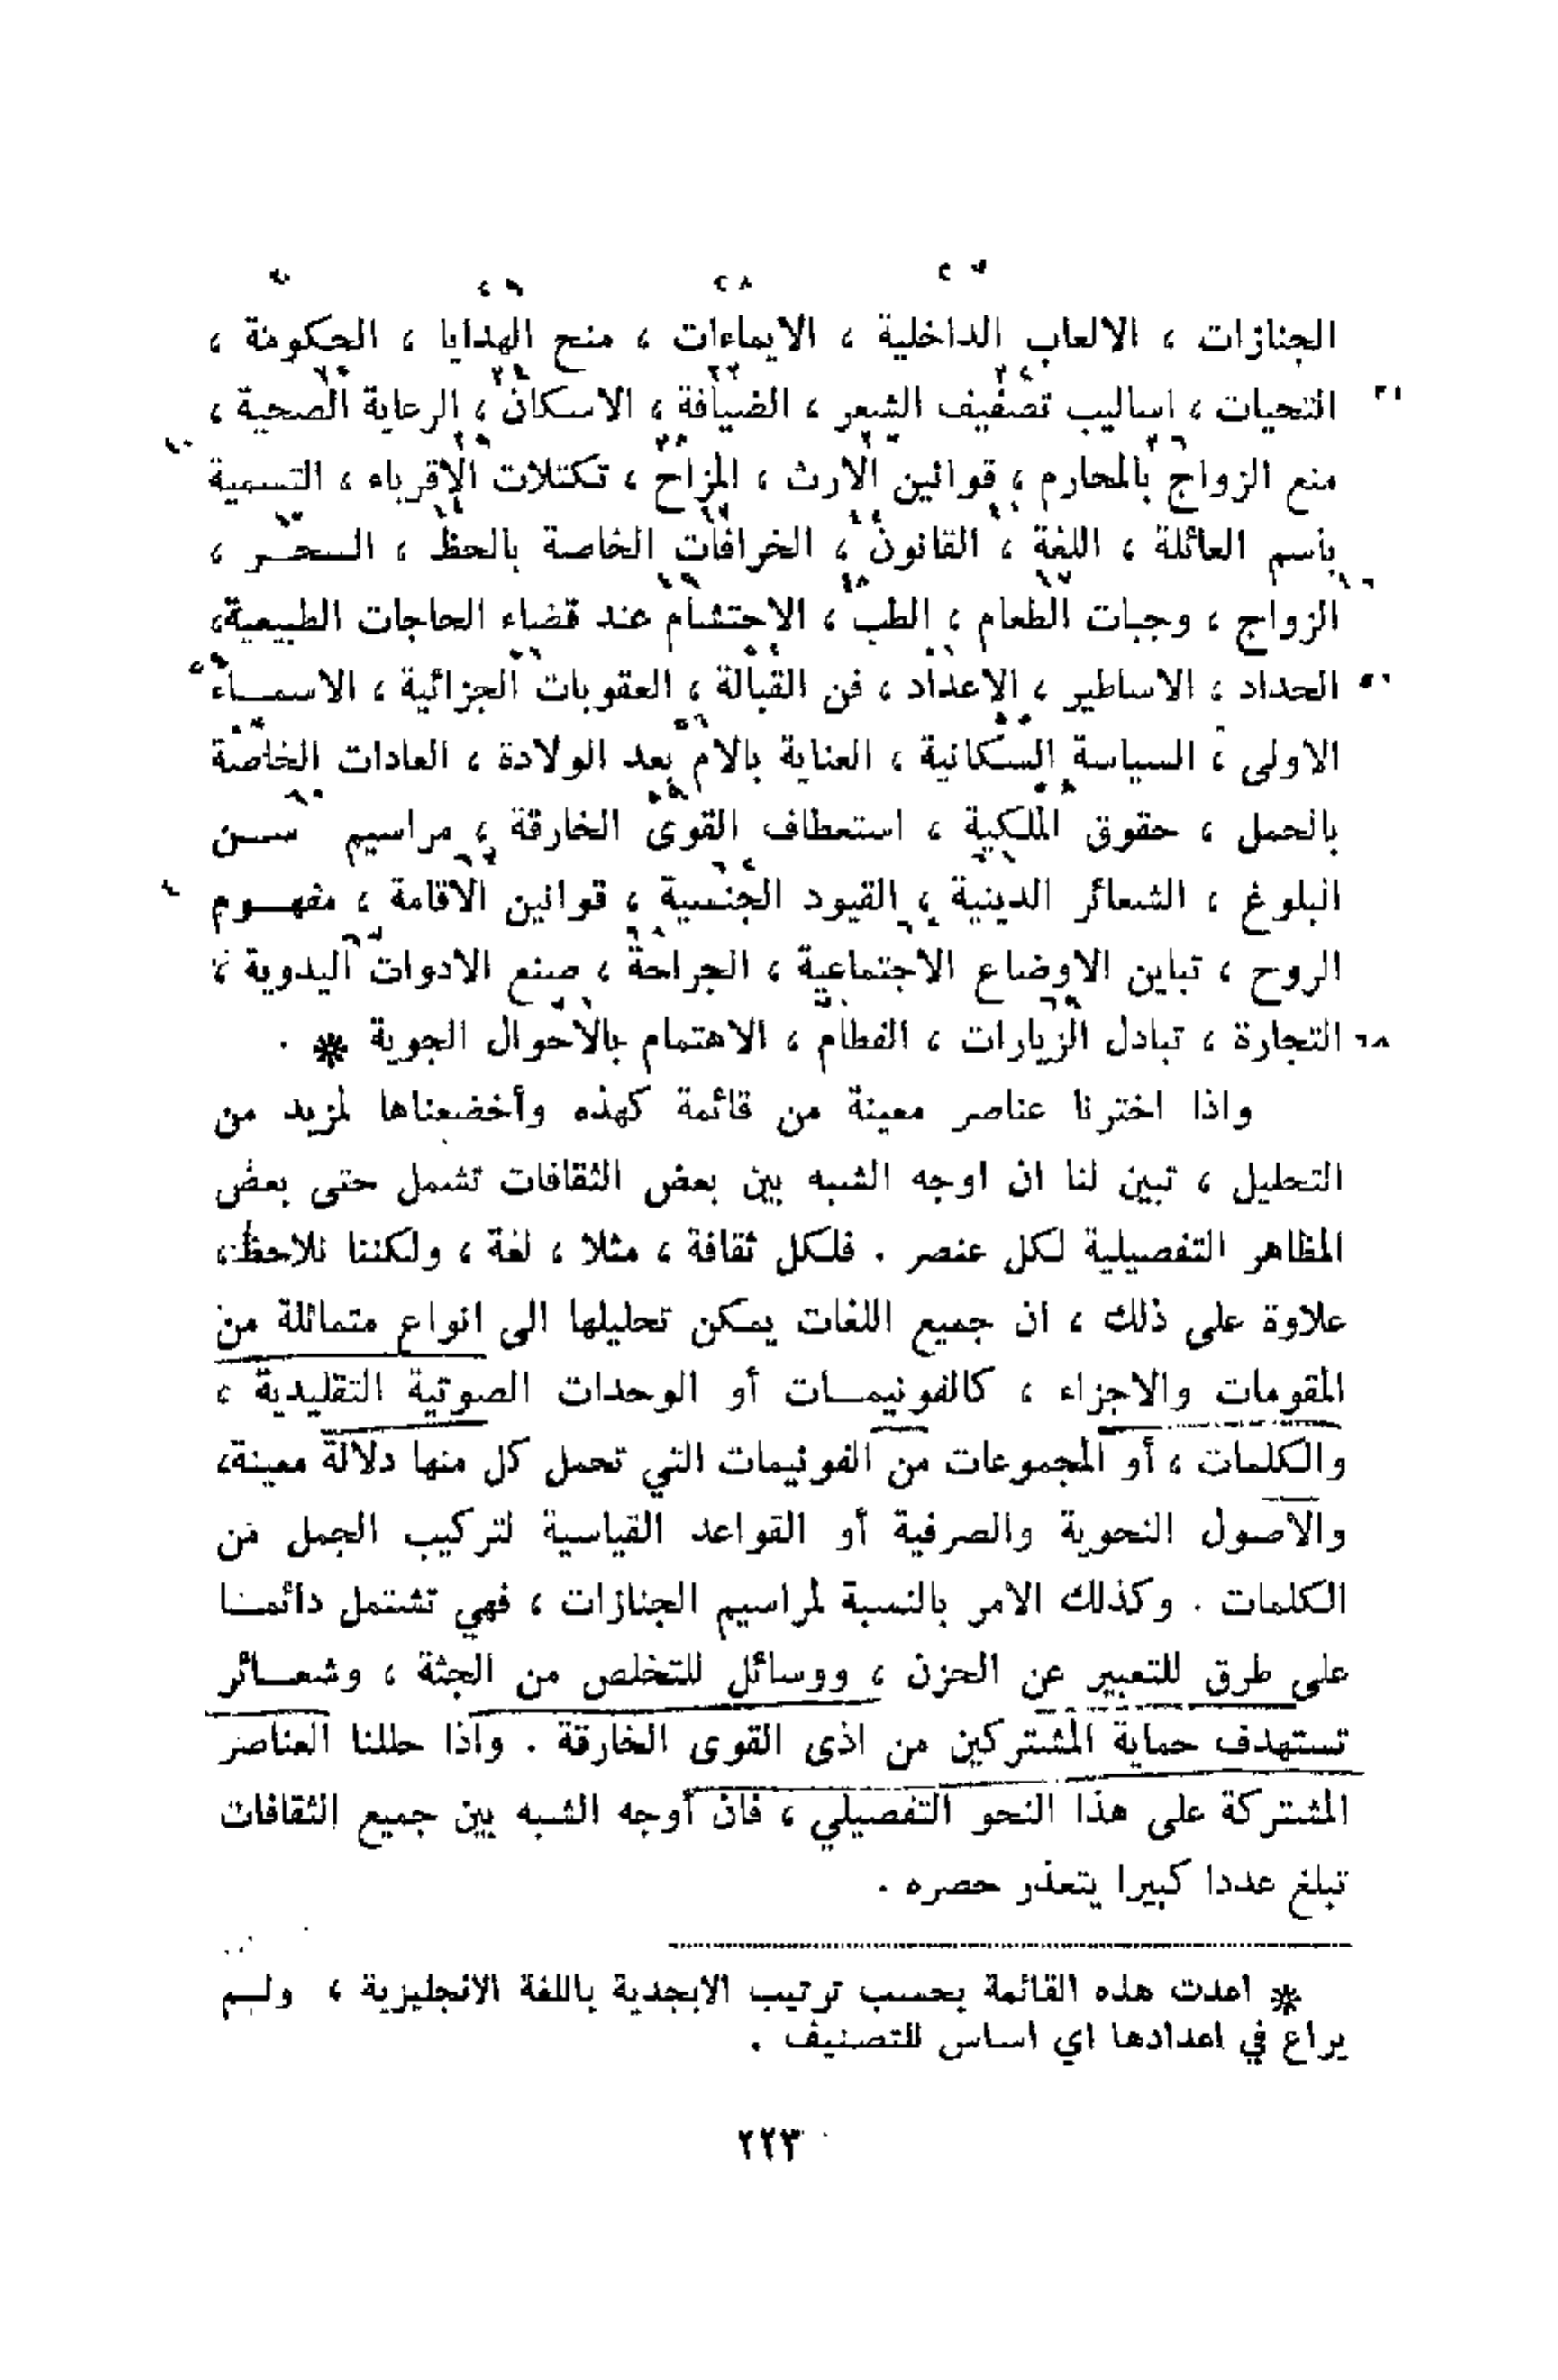 الجنازات ، الالعاب الداخلية ، الايماءات ، منح الهدايا ، الحكومة ،
التحيات ، اساليب تصفيف الشعر ، الضيافة ، الاسكان ، الرعاية الصحية ،
منع الزواج بالمحارم ، قوانين الارث ، المزاح ، تكتلات الاقرباء ، التسمية
باسم العائلة ، اللغة ، القانون ، الخرافات الخاصة بالحظ ، السحر ،
الزواج ، وجبات الطعام ، الطب ، الاحتشام عند قضاء الحاجات الطبيعية،
الحداد ، الاساطير ، الاعداد ، فن القبالة ، العقوبات الجزائية ، الاسماء
الاولى ، السياسة السكانية ، العناية بالام بعد الولادة ، العادات الخاصة
بالحمل ، حقوق الملكية ، استعطاف القوى الخارقة ، مراسيم سن
البلوغ ، الشعائر الدينية ، القيود الجنسية ، قوانين الاقامة ، مفهوم
الروح ، تباين الاوضاع الاجتماعية ، الجراحة ، صنع الادوات اليدوية ،
التجارة ، تبادل الزيارات ، الفطام ، الاهتمام بالاحوال الجوية * .
واذا اخترنا عناصر معينة من قائمة كهذه وأخضعناها لمزيد من
التحليل ، تبين لنا ان اوجه الشبه بين بعض الثقافات تشمل حتى بعض
المظاهر التفصيلية لكل عنصر . فلكل ثقافة ، مثلا ، لغة ، ولكننا نلاحظ،
علاوة على ذلك ، ان جميع اللغات يمكن تحليلها الى انواع متماثلة من
المقومات والاجزاء ، كالفونيمات أو الوحدات الصوتية التقليدية ،
والكلمات ، أو المجموعات من الفونيمات التي تحمل كل منها دلالة معينة،
والاصول النحوية والصرفية أو القواعد القياسية لتركيب الجمل من
الكلمات . وكذلك الامر بالنسبة لمراسيم الجنازات ، فهي تشتمل دائما
على طرق للتعبير عن الحزن ، ووسائل للتخلص من الجثة ، وشعائر
تستهدف حماية المشتركين من اذى القوى الخارقة . واذا حللنا العناصر
المشتركة على هذا النحو التفصيلي ، فان أوجه الشبه بين جميع الثقافات
تبلغ عددا كبيرا يتعذر حصره .
* اعدت هذه القائمة بحسب ترتيب الابجدية باللغة الانجليزية ، ولم
يراع في اعدادها اي اساس للتصنيف .
٢٢٣